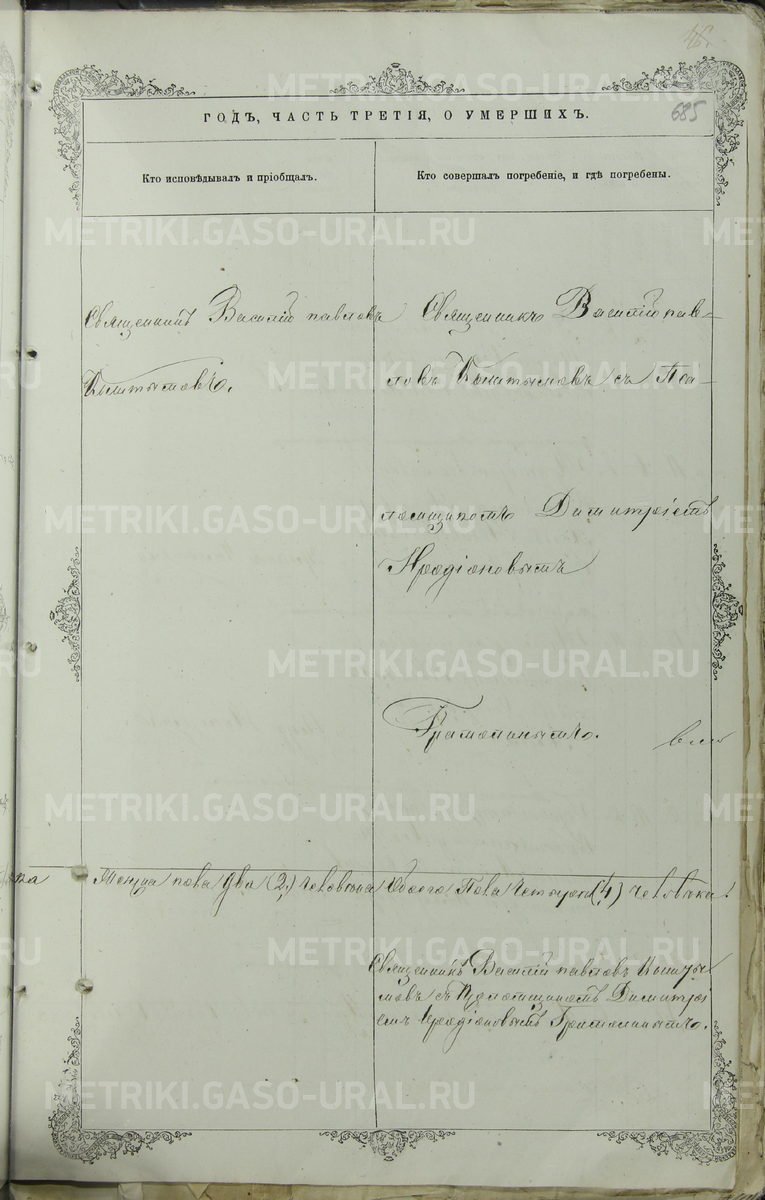 46.
685
ГОДЪ, ЧАСТЬ ТРЕТІЯ, О УМЕРШИХЪ.
Кто исповѣдывалъ и пріобщалъ.
Кто совершалъ погребеніе, и гдѣ погребены.
Священникъ Василій Павловъ
Священникъ Василій Пав-
ловъ съ Пса-
ломщикомъ Димитріемъ
Иродіоновымъ
Грамолинымъ.
Женска пола два (2) человѣка
Обоего Пола Четыре (4) человѣка.
Священникъ Василій Павловъ
съ Псаломщикомъ Димитрі
емъ Иродіоновымъ Грамолинымъ.
METRIKI.GASO-URAL.RU